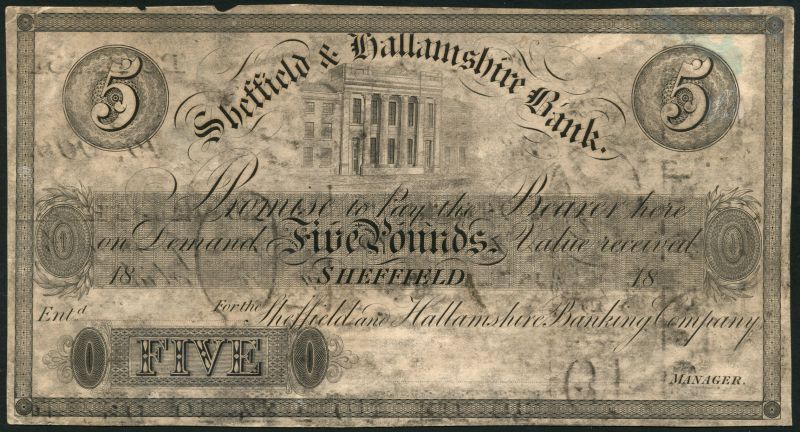 5 Sheffield & Hallamshire Bank. 5
I Promise to Pay the Bearer here
on Demand Five Pounds. Value received
18 SHEFFIELD 18
Entd For the Sheffield and Hallamshire Banking Company
FIVE
MANAGER.